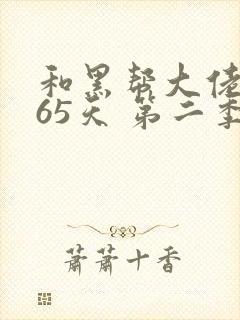 和黑帮大佬
65天 第二季
萧萧十香